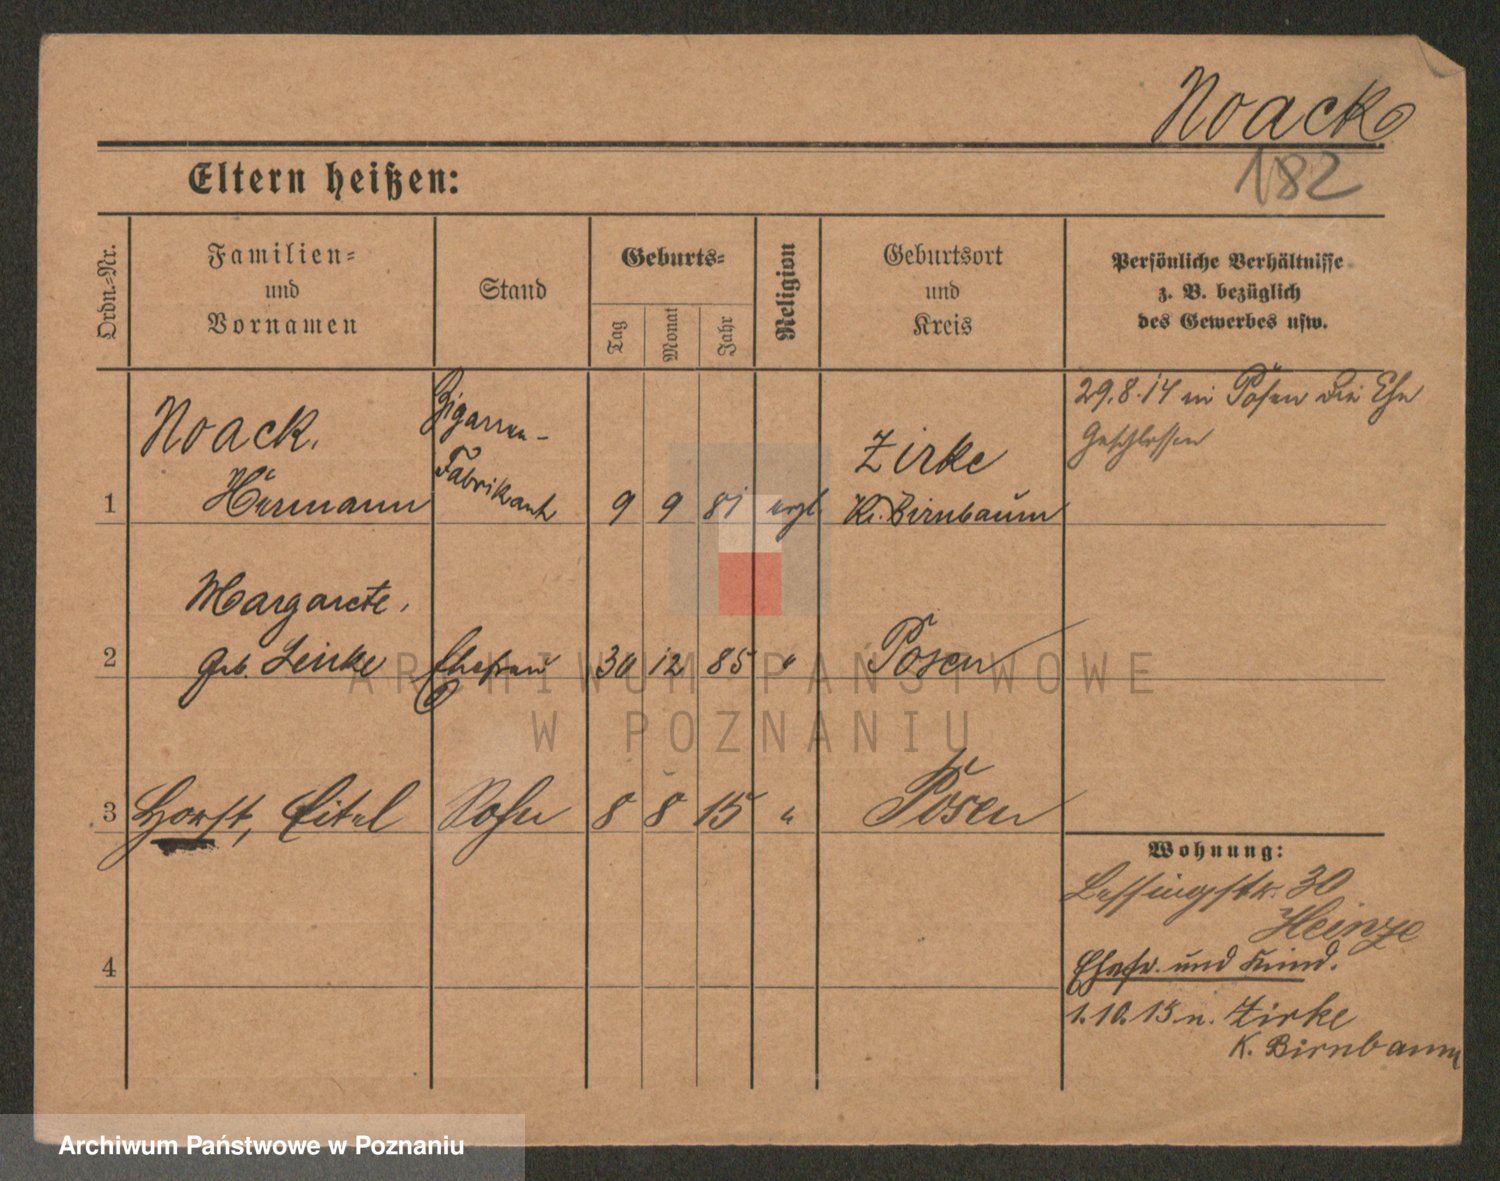 Noack
182
Eltern heißen:
Ordn.-Nr.
Familien-
und
Vornamen
Stand
Geburts-
Tag
Monat
Jahr
Religion
Geburtsort
und
Kreis
Persönliche Verhältnisse
z. B. bezüglich
des Gewerbes usw.
1
Noack,
Hermann
Zigarren-
Fabrikant
9 9 81 evgl.
Zirke
Kr. Birnbaum
29.8.14 in Posen die Ehe
geschlossen
2
Margarete,
geb. Leirke
Ehefrau
30 12 85 "
Posen
3
Horst, Eitel
Sohn
8 8 15 "
Posen
Wohnung:
Lessingstr. 30
Heinze
Ehefr. und Kind.
1.10.15 n. Zirke
K. Birnbaum
4
ARCHIWUM PAŃSTWOWE
W POZNANIU
Archiwum Państwowe w Poznaniu